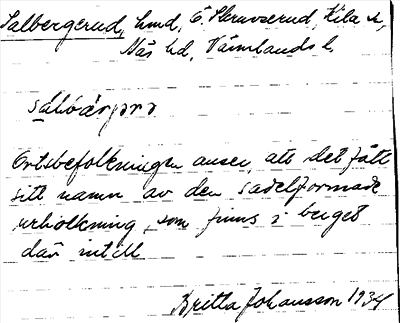 Salbergerud, hmd, Ö. Skruvserud, Kila sn,
Näs hd, Värmlands l.
Ortsbefolkningen anser, att det fått
sitt namn av den sadelformade
urholkning, som finns i berget
där intill
Britta Johansson 1934